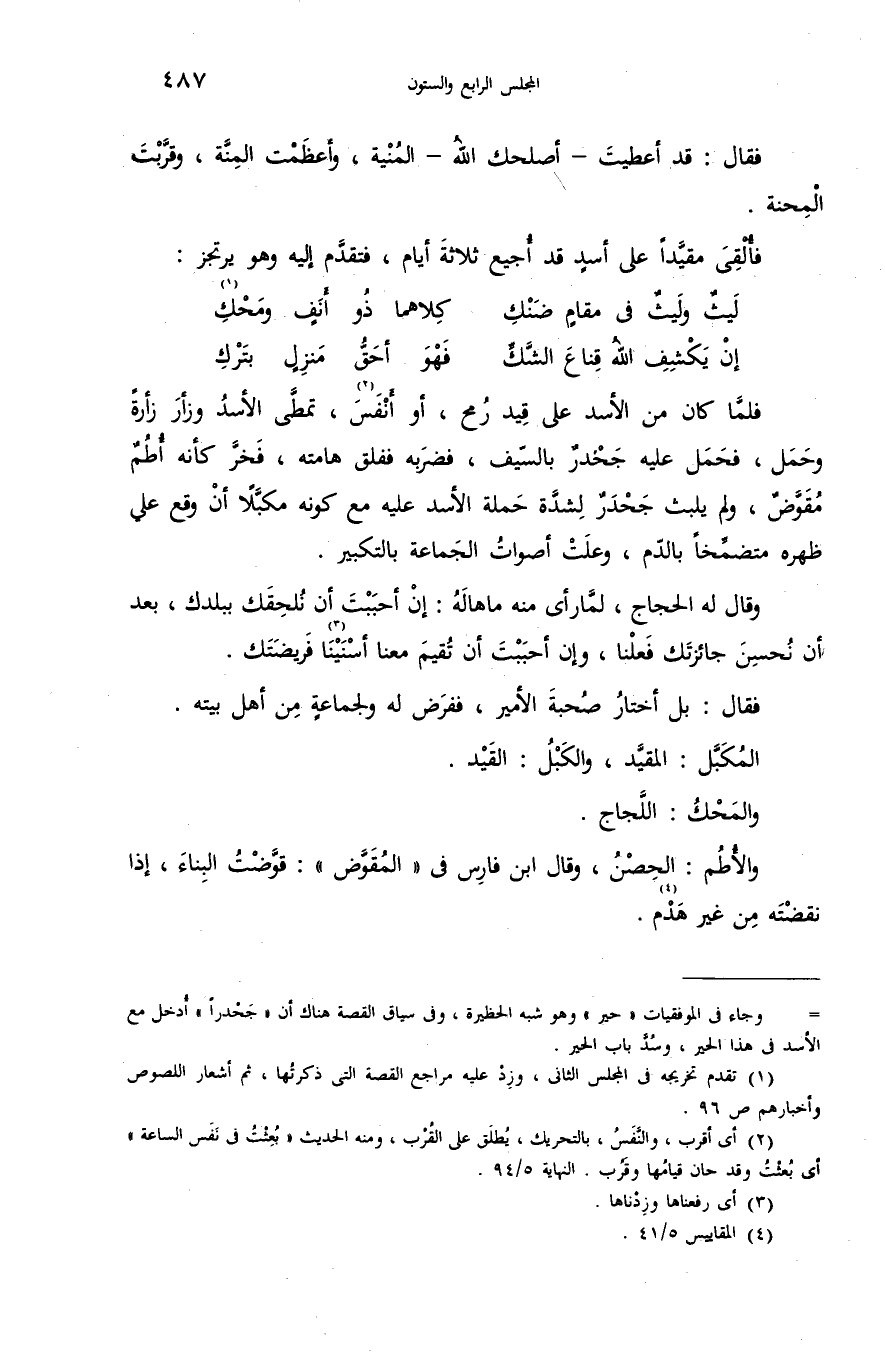 المجلس الرابع والستون ٤٨٧
فقال : قد أعطيتَ – أصلحك اللهُ – المُنْية ، وأعظَمْت المِنَّة ، وقرَّبْتَ
الْمِحنة .
فأُلْقِىَ مقيَّداً على أسدٍ قد أُجيع ثلاثةَ أيام ، فتقدَّم إليه وهو يرتجز :
لَيثٌ ولَيثٌ فى مقامٍ ضَنْكِ كِلاهما ذُو أَنَفٍ ومَحْكِ(١)
إنْ يَكْشِفِ اللهُ قِناعَ الشَّكِّ فَهْوَ أحَقُّ مَنزِلٍ بتَرْكِ
فلمَّا كان من الأسد على قِيد رُمح ، أو أَنْفَسَ(٢) ، تمطَّى الأسدُ وزأرَ زأرةً
وحَمَل ، فحَمَل عليه جَحْدرٌ بالسّيف ، فضرَبه ففلق هامته ، فَخرَّ كأنه أُطُمٌ
مُقَوَّضٌ ، ولم يلبث جَحْدَرٌ لِشدَّة حَملة الأسد عليه مع كونه مكبَّلًا أنْ وقع علي
ظهره متضمِّخاً بالدّم ، وعلَتْ أصواتُ الجَماعة بالتكبير .
وقال له الحجاج ، لمَّارأى منه ماهالَهُ : إنْ أحبَبْتَ أن نُلحِقَك ببلدك ، بعد
أن نُحسِنَ جائزتَك فَعلْنا ، وإن أحبَبْتَ أن تُقيمَ معنا أسْنَيْنَا(٣) فَريضَتَك .
فقال : بل أختارُ صُحبةَ الأمير ، ففرَض له ولجماعةٍ مِن أهل بيته .
المُكَبَّل : المقيَّد ، والكَبْلُ : القَيْد .
والمَحْكُ : اللَّجاج .
والأُطُم : الحِصْنُ ، وقال ابن فارِس فى « المُقَوَّض » : قوَّضْتُ البِناءَ ، إذا
نقضْتَه مِن غير هَدْم(٤) .
= وجاء فى الموفقيات « حير » وهو شبه الحظيرة ، وفى سياق القصة هناك أن « جَحْدراً » أُدخل مع
الأسد فى هذا الحير ، وسُدَّ باب الحير .
(١) تقدم تخريجه فى المجلس الثانى ، وزِدْ عليه مراجع القصة التى ذكرتُها ، ثم أشعار اللصوص
وأخبارهم ص ٩٦ .
(٢) أى أقرب ، والنَّفَسُ ، بالتحريك ، يُطلَق على القُرْب ، ومنه الحديث « بُعِثْتُ فى نَفَس الساعة »
أى بُعثْتُ وقد حان قيامُها وقَرُب . النهاية ٩٤/٥ .
(٣) أى رفعناها وزِدْناها .
(٤) المقاييس ٤١/٥ .